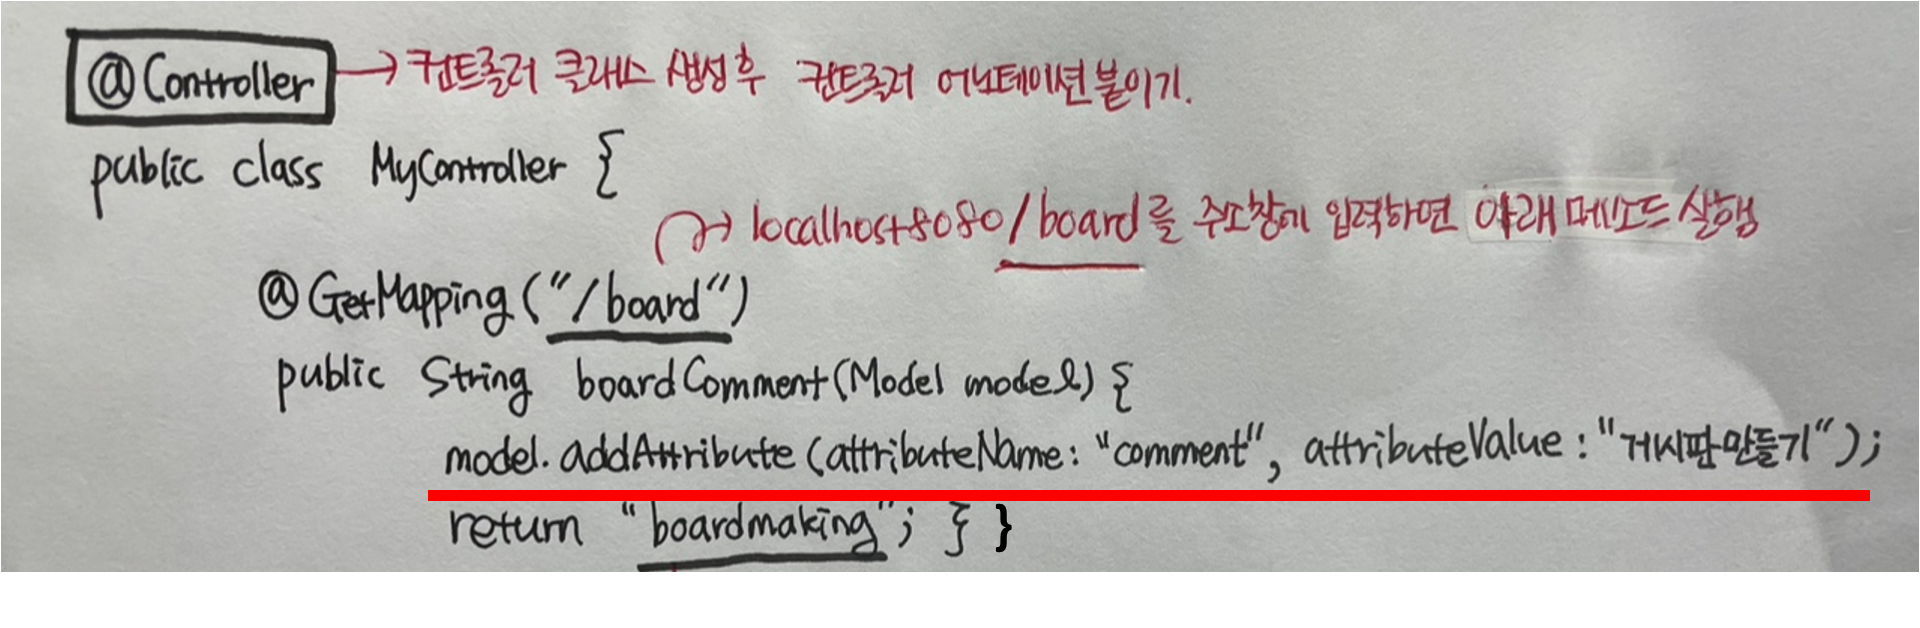 @Controller → 컨트롤러 클래스 생성 후 컨트롤러 어노테이션 붙이기.
public class MyController {
→ localhost8080/board를 주소창에 입력하면 아래 메소드 실행
@GetMapping("/board")
public String boardComment(Model model) {
model.addAttribute(attributeName: "comment", attributeValue: "게시판 만들기");
return "boardmaking"; } }